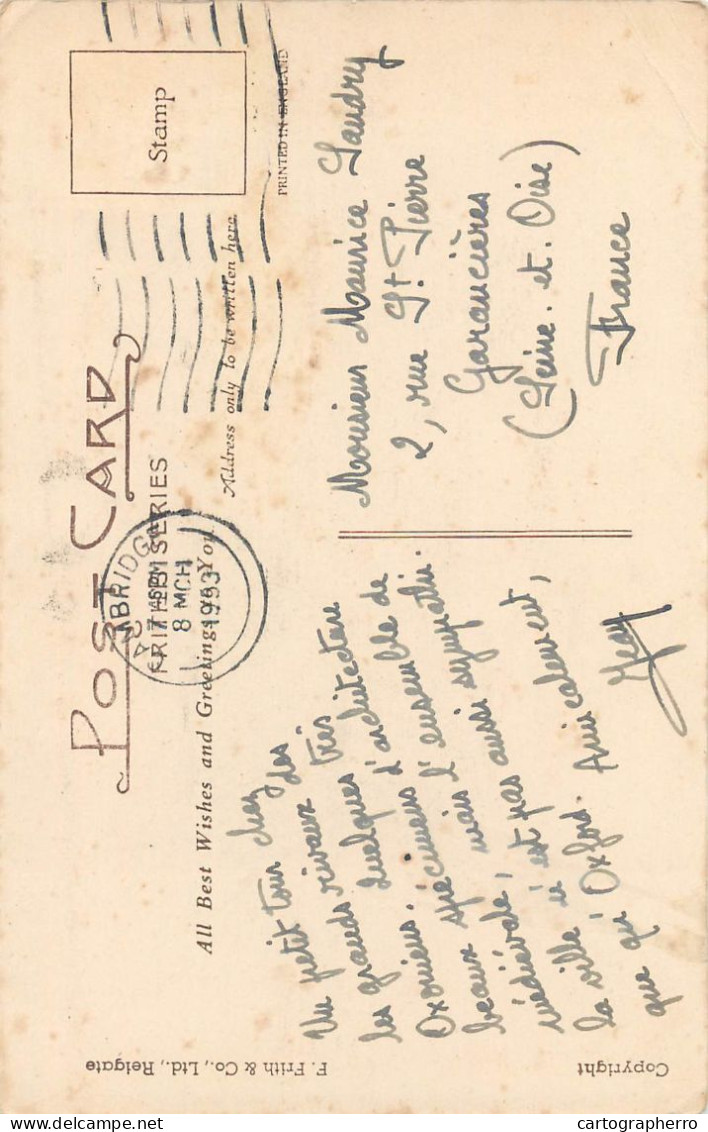 POST CARD
FRITH'S SERIES
All Best Wishes and Greetings to You.
Address only to be written here.
Stamp
PRINTED IN ENGLAND
MBRIDG
7 45 PM
8 MCH
1953
Un petit tour chez
les grands rivaux des
Oxoniens. Quelques très
beaux spécimens d'architecture
médiévale, mais l'ensemble de
la ville n'est pas aussi sympathi.
que qu'Oxford. Amicalement,
Jean
Monsieur Maurice Landry
2, rue St. Pierre
Garancières
(Seine. et. Oise)
France
F. Frith & Co., Ltd., Reigate
Copyright
cartographerro